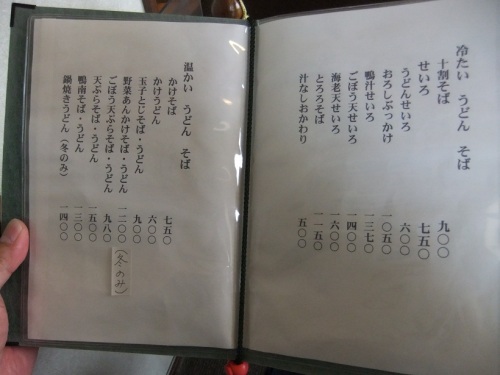 冷たい うどん そば
十割そば 九〇〇
せいろ 七五〇
うどんせいろ 六〇〇
おろしぶっかけ 一〇五〇
鴨汁せいろ 一三七〇
ごぼう天せいろ 一四〇〇
海老天せいろ 一六〇〇
とろろそば 一一五〇
汁なしおかわり 五〇〇
温かい うどん そば
かけそば 七五〇
かけうどん 六〇〇
玉子とじそば・うどん 九〇〇
野菜あんかけそば・うどん 一二〇〇
ごぼう天ぷらそば・うどん 九八〇
(冬のみ)
天ぷらそば・うどん 一五〇〇
鴨南そば・うどん 一三〇〇
鍋焼きうどん(冬のみ) 一四〇〇